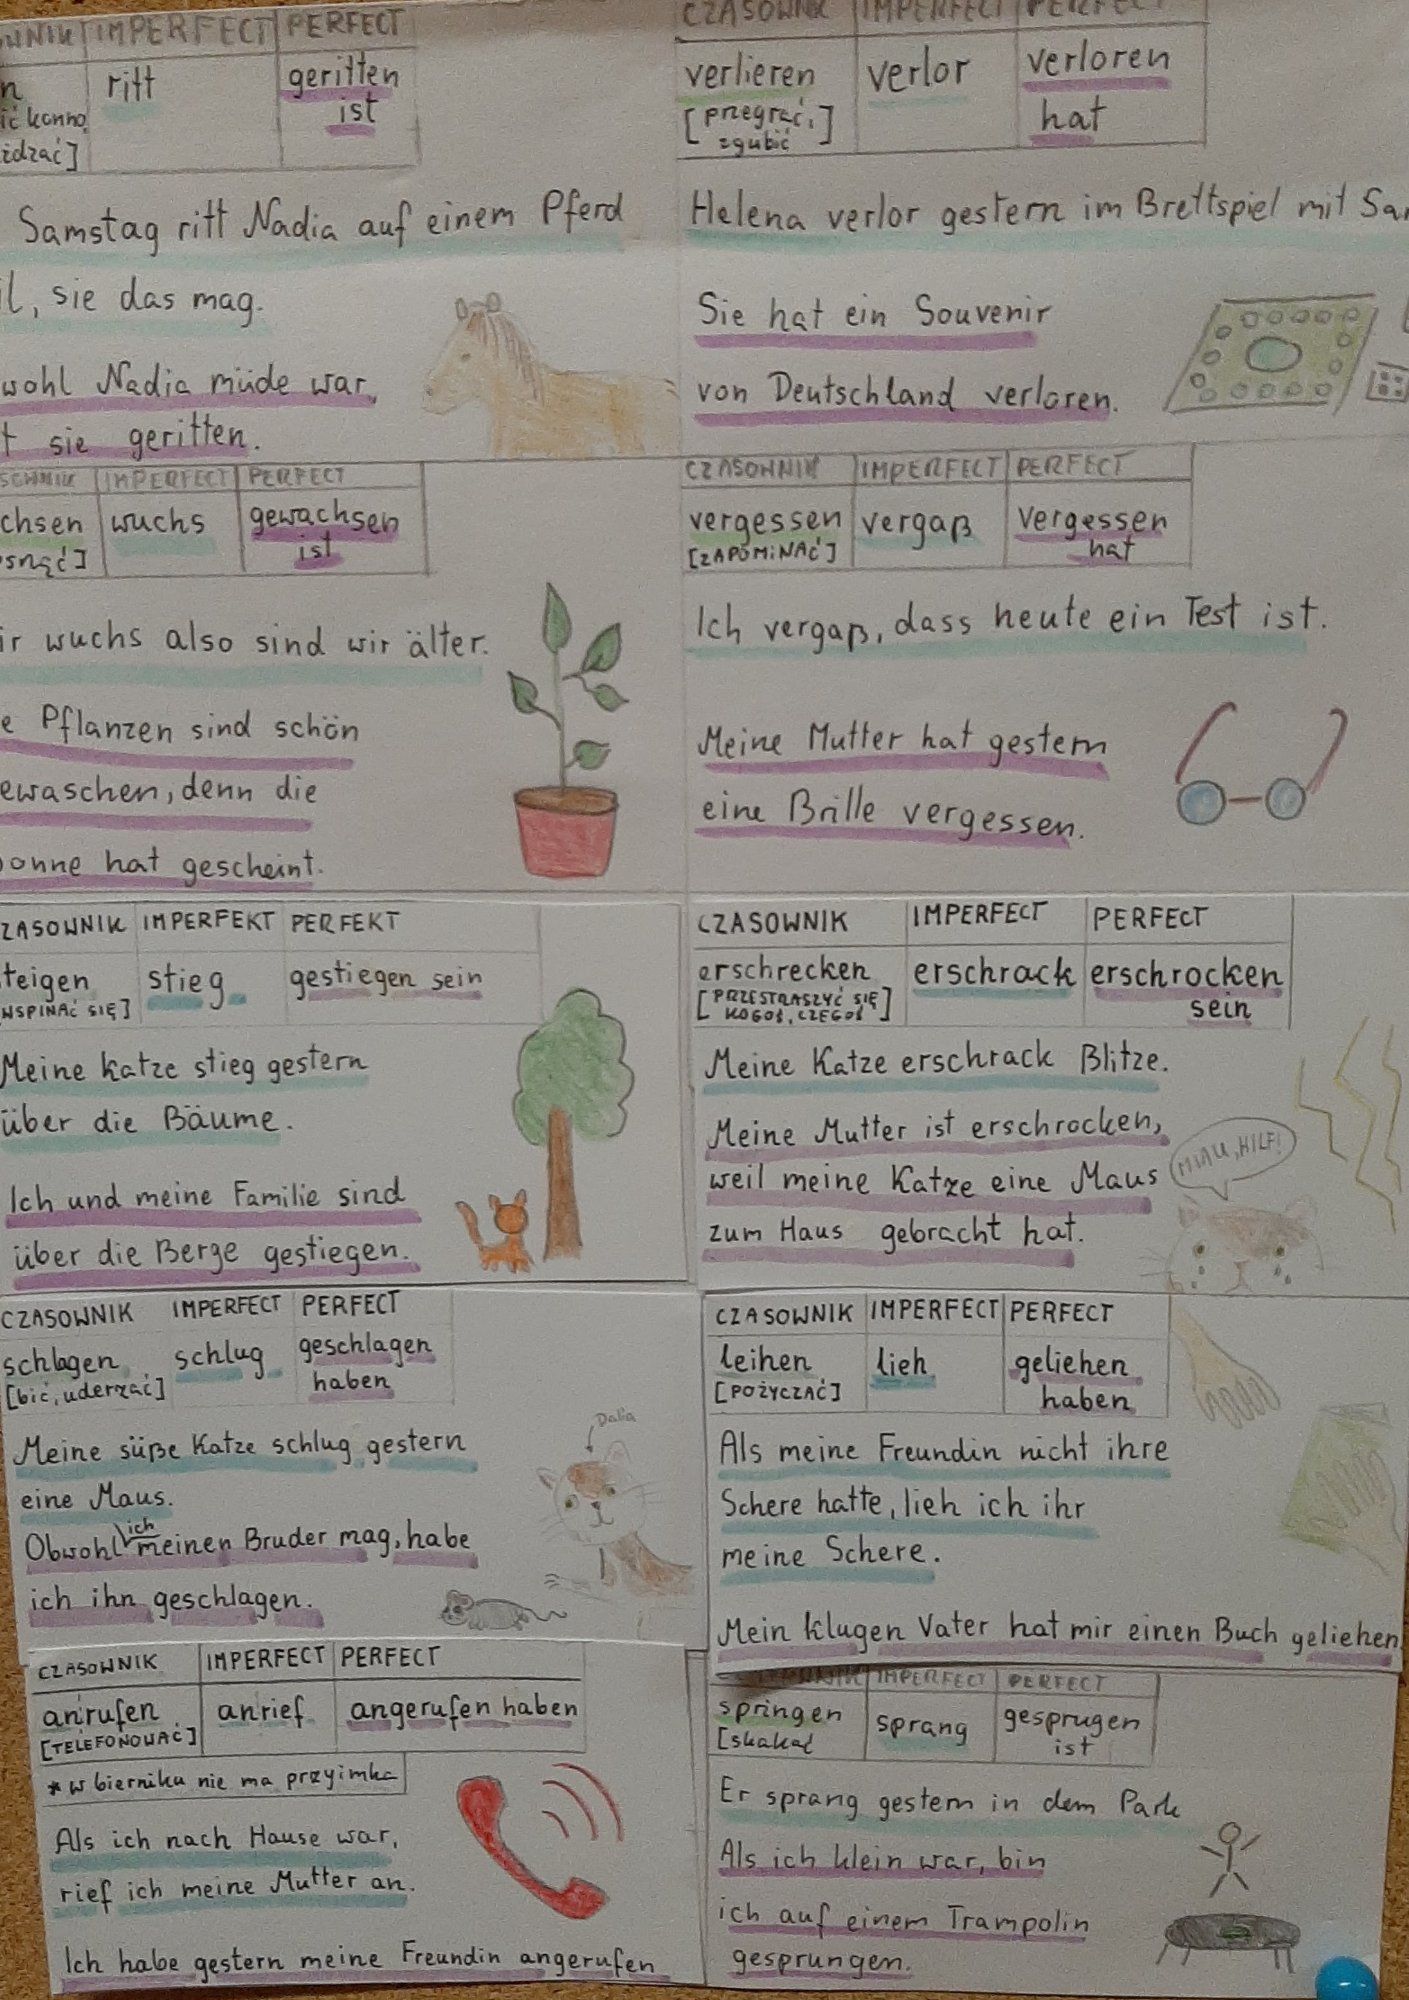 IMPERFECT PERFECT
ritt geritten
ist
ić konno,
żdżać]
Samstag ritt Nadia auf einem Pferd
il, sie das mag.
wohl Nadia müde war,
t sie geritten.
CZASOWNIK IMPERFECT PERFECT
verlieren verlor verloren
[przegrać, zgubić] hat
Helena verlor gestern im Brettspiel mit Sa
Sie hat ein Souvenir
von Deutschland verloren.
IMPERFECT PERFECT
chsen wuchs gewachsen
osnąć] ist
ir wuchs also sind wir älter.
e Pflanzen sind schön
ewaschen, denn die
onne hat gescheint.
CZASOWNIK IMPERFECT PERFECT
vergessen vergaß vergessen
[ZAPOMINAĆ] hat
Ich vergaß, dass heute ein Test ist.
Meine Mutter hat gestern
eine Brille vergessen.
ZASOWNIK IMPERFEKT PERFEKT
teigen stieg gestiegen sein
WSPINAĆ SIĘ]
Meine Katze stieg gestern
über die Bäume.
Ich und meine Familie sind
über die Berge gestiegen.
CZASOWNIK IMPERFECT PERFECT
erschrecken erschrack erschrocken
[PRZESTRASZYĆ SIĘ sein
KOGOŚ, CZEGOŚ]
Meine Katze erschrack Blitze.
Meine Mutter ist erschrocken,
weil meine Katze eine Maus
zum Haus gebracht hat.
MIAU, HILF!
CZASOWNIK IMPERFECT PERFECT
schlagen schlug geschlagen
[bić, uderzać] haben
Meine süße Katze schlug gestern
eine Maus.
Obwohl ich meinen Bruder mag, habe
ich ihn geschlagen.
Dalia
CZASOWNIK IMPERFECT PERFECT
leihen lieh geliehen
[POŻYCZAĆ] haben
Als meine Freundin nicht ihre
Schere hatte, lieh ich ihr
meine Schere.
Mein klugen Vater hat mir einen Buch geliehen
CZASOWNIK IMPERFECT PERFECT
anrufen anrief angerufen haben
[TELEFONOWAĆ]
* w bierniku nie ma przyimka
Als ich nach Hause war,
rief ich meine Mutter an.
Ich habe gestern meine Freundin angerufen
IMPERFECT PERFECT
springen sprang gesprugen
[skakać ist
Er sprang gestern in dem Park
Als ich klein war, bin
ich auf einem Trampolin
gesprungen.